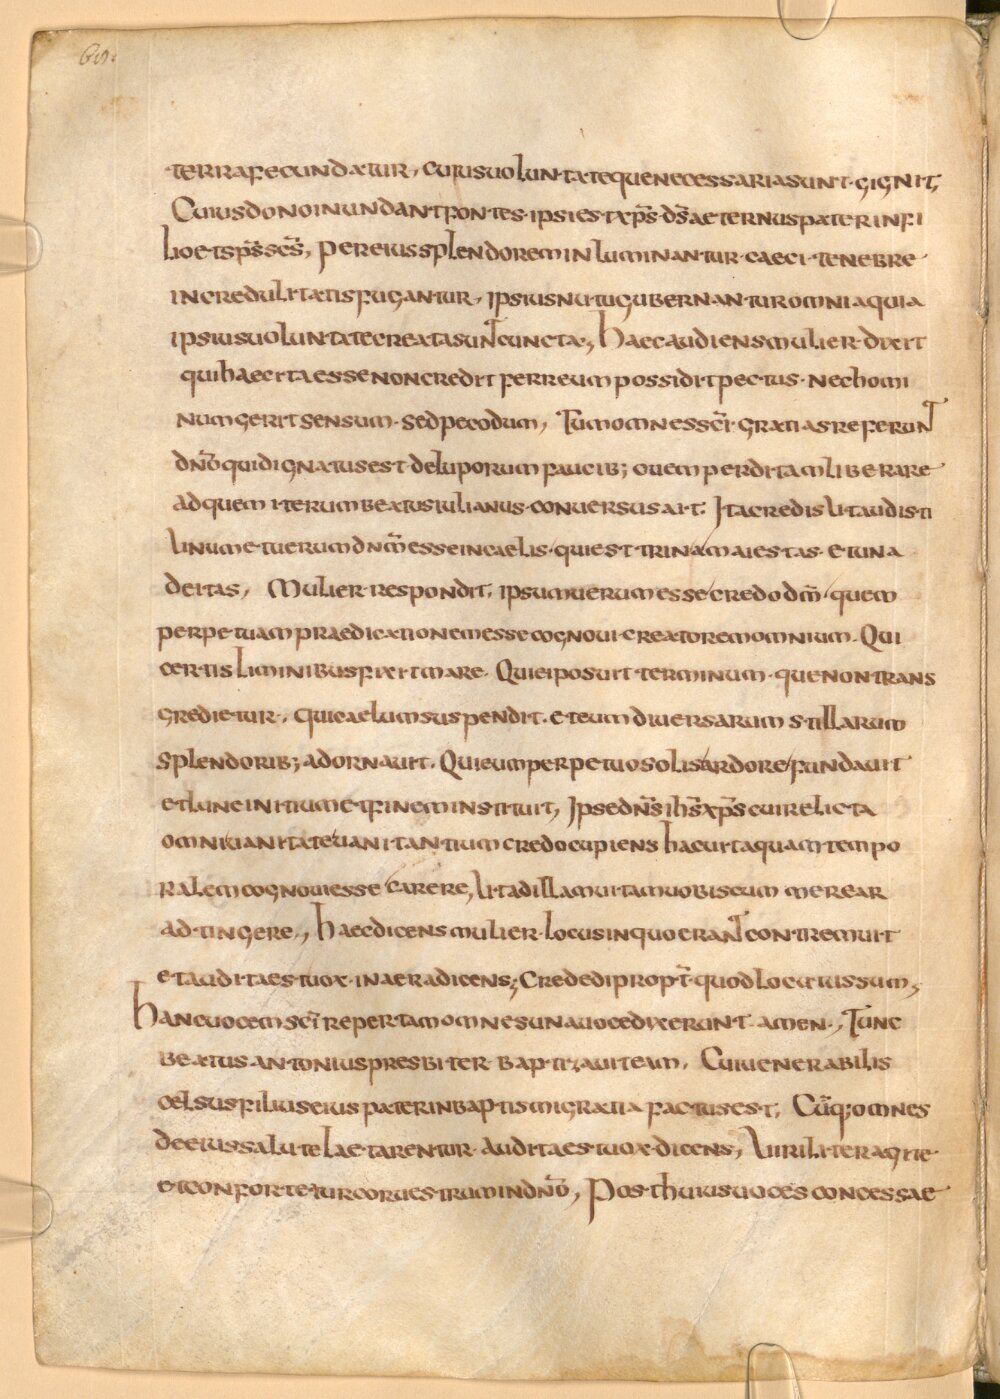 69.
terrafecundatur, cuiusuoluntatequenecessariasunt·gignit,
Cuiusdonoinundantfontes·ipsiestxp̄s·d̄saeternuspaterinfi
lioetsp̄s̄sc̄s, pereiussplendoreminluminantur·caeci·tenebre
incredulitatisfugantur, ipsiusnutugubernanturomniaquia
ipsiusuoluntatecreatasuntcuncta, haecaudiensmulier·dixit
quihaecitaessenoncredit ferreumpossiditpectus·nechomi
numgeritsensum·sedpecodum, Tumomnessc̄i·gratiasreferunt
dn̄oquidignatusest·deluporumfaucib; ouemperditamliberare
adquem iterumbeatusiulianus·conuersusait. Itacredisutaudisti
unumetuerumdn̄messeincaelis·quiesttrinamaiestas·etuna
deitas, Mulier·respondit. ipsumuerumessecredodm̄ quem
perpetuampraedicationemessecognoui·creatoremomnium·Qui
certisliminibusfixitmare·Quieiposuit·terminum·quenontrans
gredietur, quicaelumsuspendit·eteumdiuersarumstillarum
splendorib; adornauit. Quieumperpetuosolisardorefundauit
etluneinitiumetfineminstituit, Ipsedn̄sih̄sxp̄scuirelicta
omniuanitateuanitantiumcredocupienshacuitaquamtempo
ralemcognouiesse carere, utadillamuitamuobiscum merear
ad·tingere., haecdicensmulier·locusinquoerantcontremuit
etauditaestuox·inaeradicens; Crededipropt̄·quodlocutussum,
hancuocemsc̄irepertamomnesunauocedixerunt·amen., Tunc
beatusantoniuspresbiter·baptizauiteam. Cuiuenerabilis
celsusfiliuseiuspaterinbaptismigratia factusest, Cūq;omnes
deeiussalutelaetarentur·auditaestuoxdicens, Uiriliteragite·
etconforteturcoruestrumindn̄o, Posthuiusuoces concessae